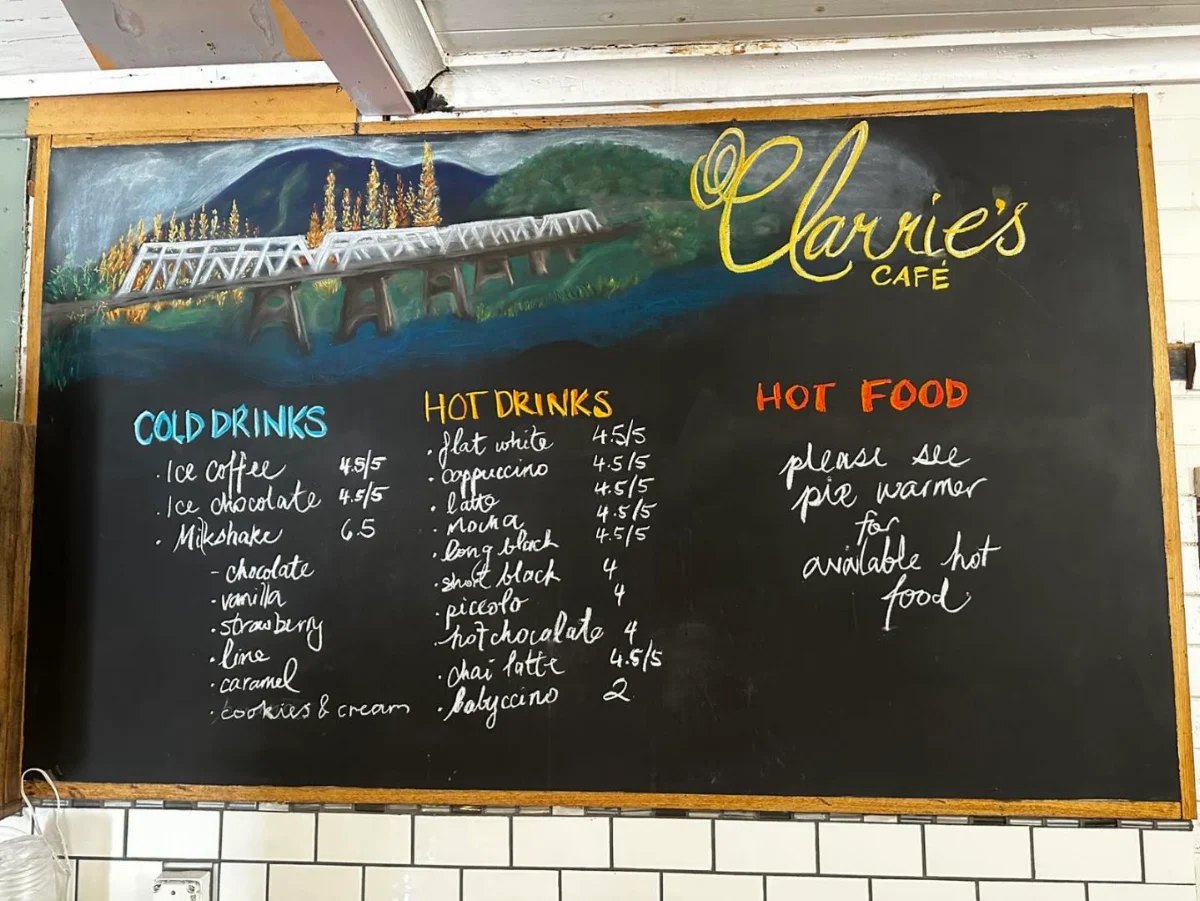 Clarrie's
CAFÉ
COLD DRINKS
· Ice coffee 4.5/5
· Ice chocolate 4.5/5
· Milkshake 6.5
- chocolate
- vanilla
· strawberry
· line
· caramel
· cookies & cream
HOT DRINKS
· flat white 4.5/5
· cappuccino 4.5/5
· latte 4.5/5
· mocha 4.5/5
· long black 4.5/5
· short black 4
· piccolo 4
· hot chocalate 4
· chai latte 4.5/5
· babyccino 2
HOT FOOD
please see
pie warmer
for
available hot
food